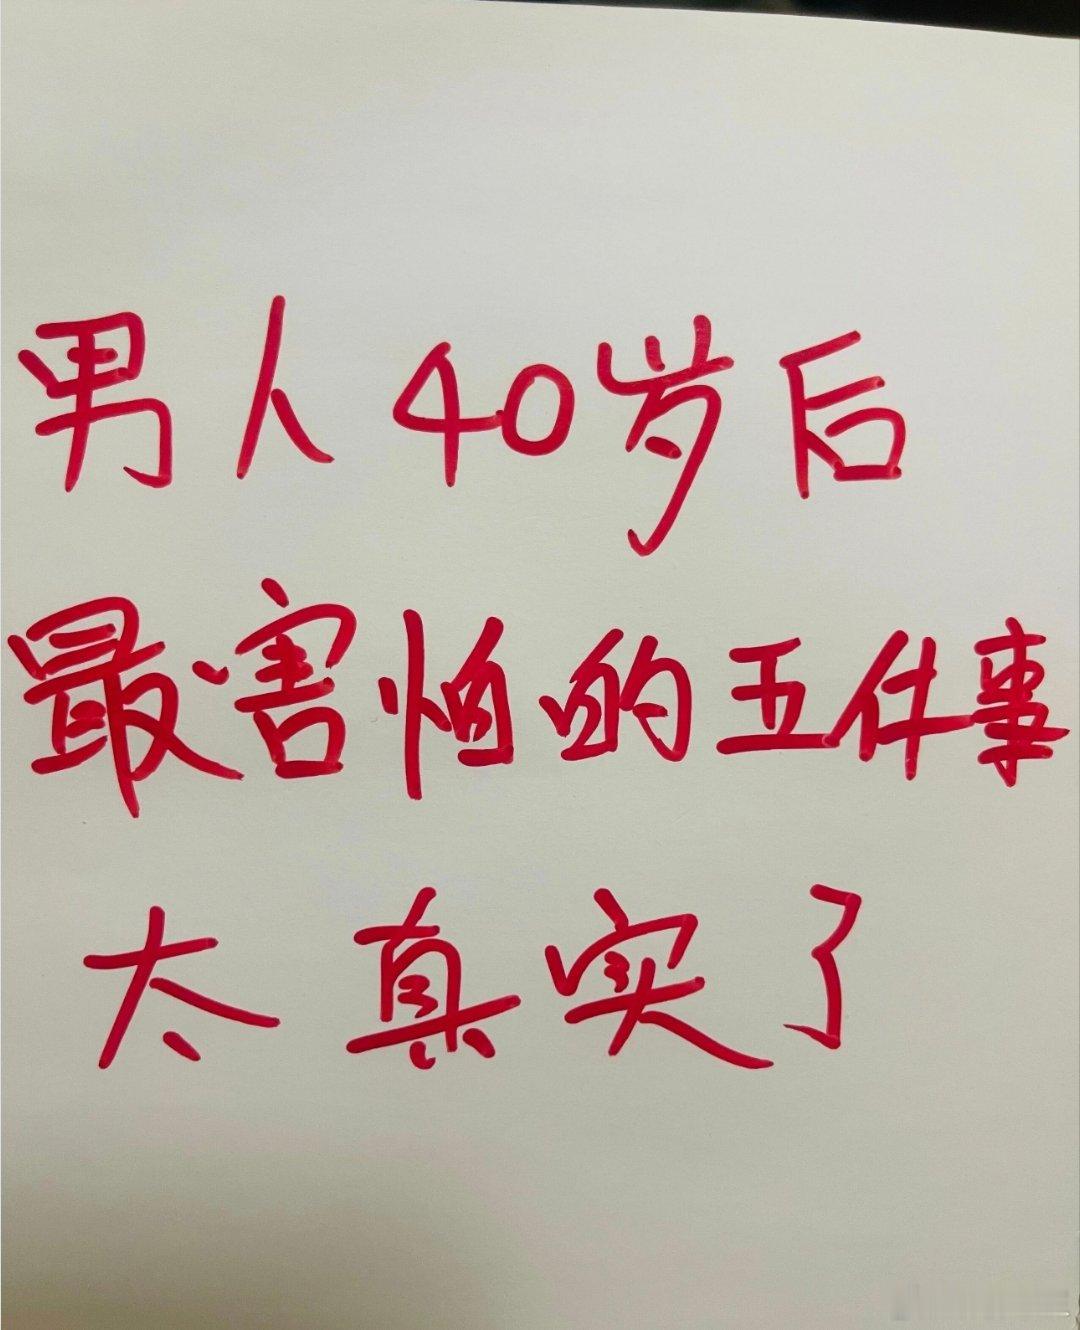 男人40岁后
最害怕的五件事
太真实了